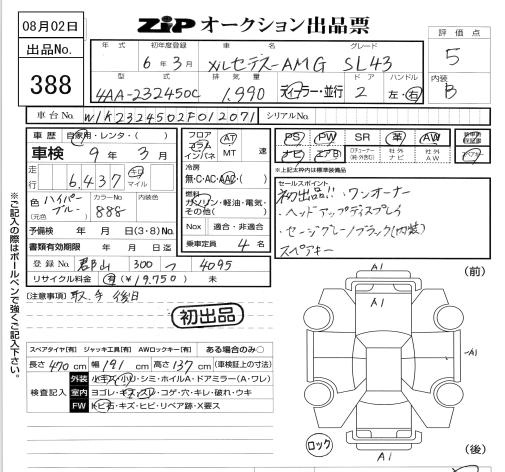 08月02日
ZIP オークション出品票
出品No.
388
評価点
5
内装
B
年式 初年度登録 車名 グレード
6年3月 メルセデス-AMG SL43
型式 排気量 ドア ハンドル
4AA-232450C 1,990 ディーラー・並行 2 左・右
車台No. W1K2324502F012071 シリアルNo.
車歴 自家用・レンタ・( )
車検 9年 3月
走行 6,437 キロ マイル
色 ハイパーブルー (元色) カラーNo. 888 内装色
予備検 年 月 日(3・8)No.
書類有効期限 年 月 日迄
登録No. 郡山 300 つ 4095
リサイクル料金 有(¥19,750) 未
フロア コラム インパネ AT MT 速
冷房 無・C・AC・AAC・( )
燃料 ガソリン・軽油・電気・その他( )
Nox 適合・非適合
乗車定員 4名
PS PW SR 革 AW
ナビ エアB 社外ナビ 社外AW
※上記太枠内は標準装備品
セールスポイント
初出品!!・ワンオーナー
・ヘッドアップディスプレイ
・セージグレー/ブラック(内装)
スペアキー
[注意事項] 取・手 後日
初出品
スペアタイヤ[有] ジャッキ工具[有] AWロックキー[有] ある場合のみ○
長さ 470 cm 幅 191 cm 高さ 137 cm (車検証上の寸法)
検査記入
外装 小キズ・小凹・シミ・ホイルA・ドアミラー(A・ワレ)
室内 ヨゴレ・キズ・スレ・コゲ・穴・キレ・破れ・ウキ
FW トビ石・キズ・ヒビ・リペア跡・X要ス
(前)
A1
A1
A1
ロック
A1
(後)
※ご記入の際はボールペンで強くご記入下さい。